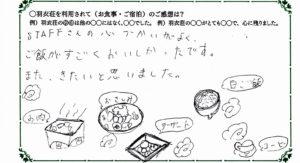 ○羽衣荘を利用されて（お食事・ご宿泊）のご感想は？
例）羽衣荘の○○は他の○○にはなく、○○でした。 例）羽衣荘の○○がとても○○で、心に残りました。
STAFFさんの心づかいがよく、
ご飯がすごくおいしかったです。
また、きたいと思いました。
お肉
おさしみ
デザート
白ご飯
コーヒー